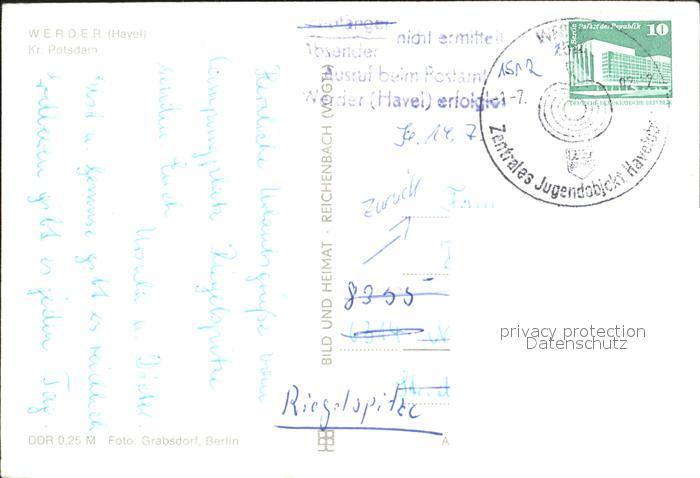 WERDER (Havel)
Kr. Potsdam
Herzliche Urlaubsgrüße vom
Campingplatz Riegelspitze
senden Euch Ursula u. Dieter.
Obst u. Gemüse gibt es reichlich
Erdbeeren gibt es jeden Tag.
DDR 0,25 M Foto: Grabsdorf, Berlin
BILD UND HEIMAT · REICHENBACH (VOGTL)
Empfänger
Absender nicht ermittelt
Ausruf beim Postamt
Werder (Havel) erfolglos
14. 7.
zurück
Fam
8355
Riegelspitze
A
1512
Zentrales Jugendobjekt Havelobst
Berlin, Palast der Republik 10
DEUTSCHE DEMOKRATISCHE REPUBLIK
privacy protection
Datenschutz